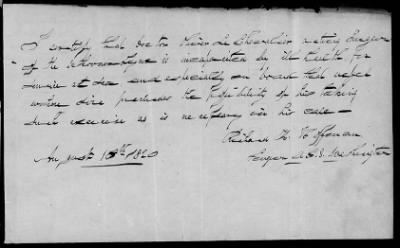 I certify that Doctor Le Chevallier acting Surgeon
of the is incapacitated by ill health for
service at sea and especially on board that vessel
whose size precludes the possibility of his taking
such exercise as is necessary in his case —
Richard K. Hoffman
August 18th 1820 Surgeon U.S.S. Washington